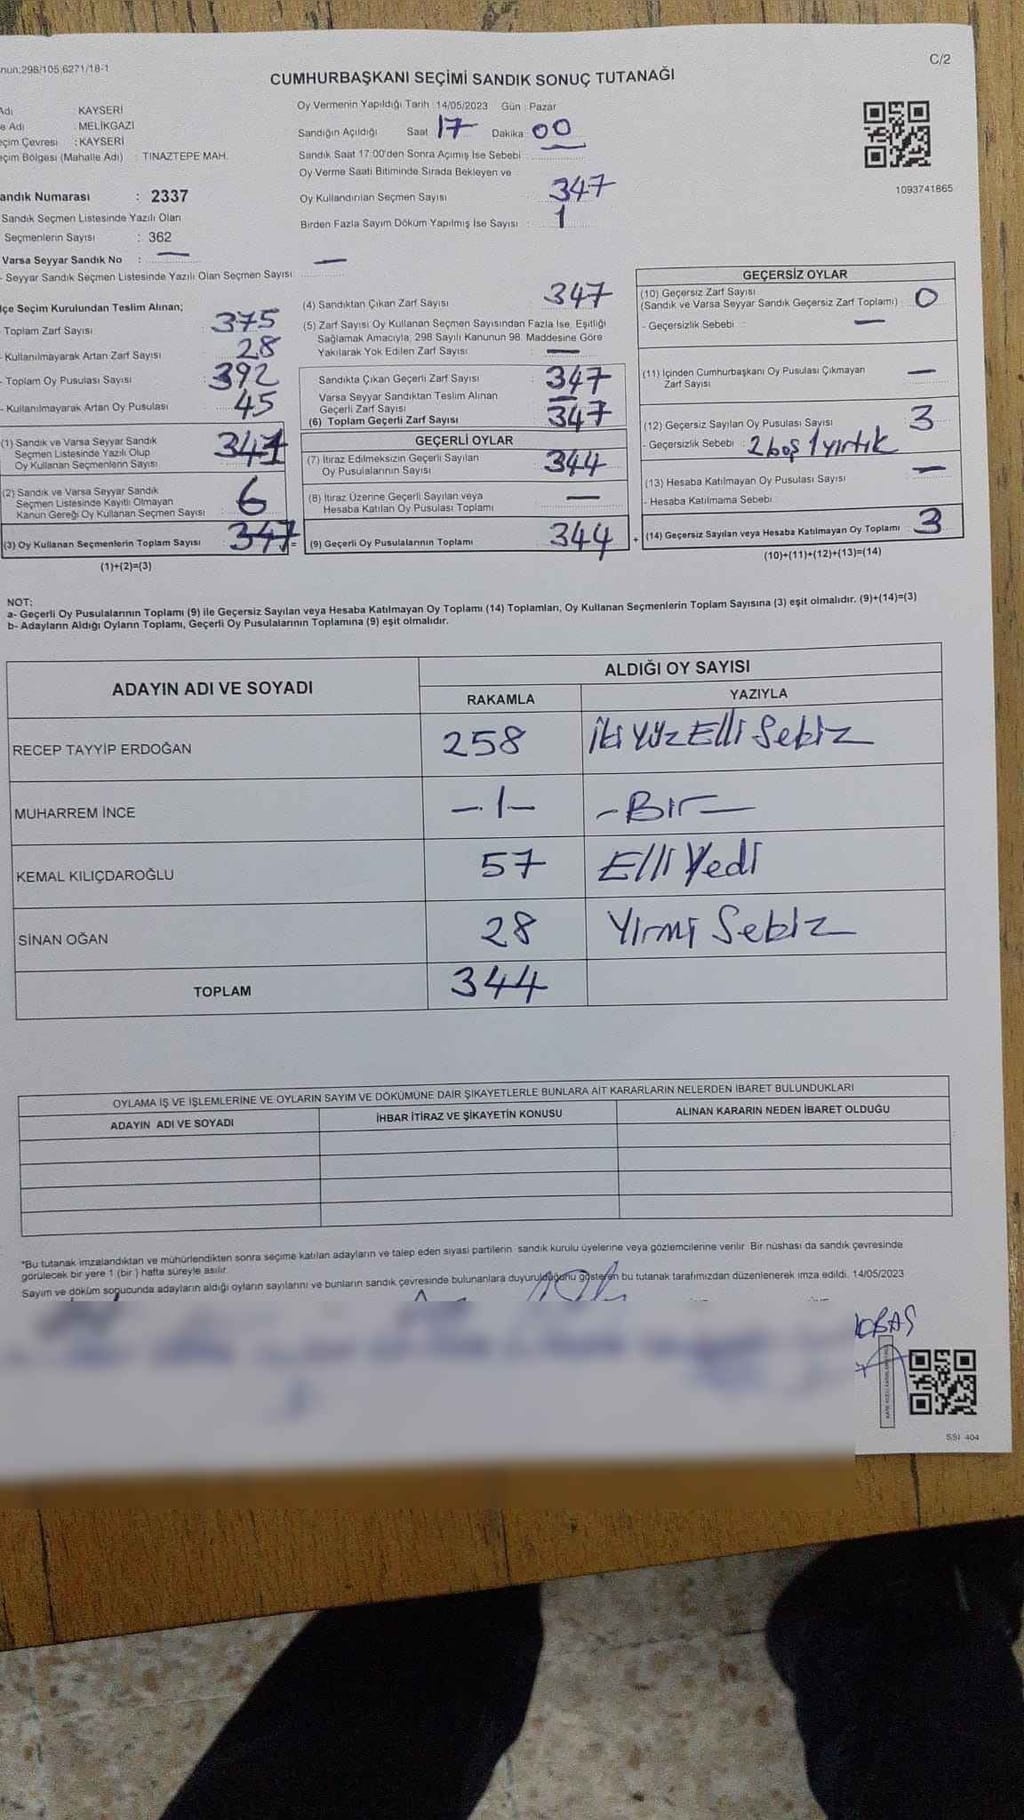 nun:298/105,6271/18-1
C/2
CUMHURBAŞKANI SEÇİMİ SANDIK SONUÇ TUTANAĞI
Adı KAYSERİ
e Adı : MELİKGAZİ
eçim Çevresi : KAYSERİ
eçim Bölgesi (Mahalle Adı) : TINAZTEPE MAH.
andık Numarası : 2337
Sandık Seçmen Listesinde Yazılı Olan
Seçmenlerin Sayısı : 362
Varsa Seyyar Sandık No : —
- Seyyar Sandık Seçmen Listesinde Yazılı Olan Seçmen Sayısı : —
Oy Vermenin Yapıldığı Tarih : 14/05/2023 Gün : Pazar
Sandığın Açıldığı Saat 17 Dakika 00
Sandık Saat 17:00'den Sonra Açımış İse Sebebi :
Oy Verme Saati Bitiminde Sırada Bekleyen ve
Oy Kullandırılan Seçmen Sayısı : 347
Birden Fazla Sayım Döküm Yapılmış İse Sayısı : 1
1093741865
lçe Seçim Kurulundan Teslim Alınan;
- Toplam Zarf Sayısı : 375
- Kullanılmayarak Artan Zarf Sayısı : 28
- Toplam Oy Pusulası Sayısı : 392
- Kullanılmayarak Artan Oy Pusulası : 45
(1) Sandık ve Varsa Seyyar Sandık
Seçmen Listesinde Yazılı Olup
Oy Kullanan Seçmenlerin Sayısı :
(2) Sandık ve Varsa Seyyar Sandık
Seçmen Listesinde Kayıtlı Olmayan
Kanun Gereği Oy Kullanan Seçmen Sayısı : 6
(3) Oy Kullanan Seçmenlerin Toplam Sayısı 347 =
(1)+(2)=(3)
(4) Sandıktan Çıkan Zarf Sayısı : 347
(5) Zarf Sayısı Oy Kullanan Seçmen Sayısından Fazla İse, Eşitliği
Sağlamak Amacıyla, 298 Sayılı Kanunun 98. Maddesine Göre
Yakılarak Yok Edilen Zarf Sayısı : —
Sandıkta Çıkan Geçerli Zarf Sayısı : 347
Varsa Seyyar Sandıktan Teslim Alınan
Geçerli Zarf Sayısı : —
(6) Toplam Geçerli Zarf Sayısı : 347
GEÇERLİ OYLAR
(7) İtiraz Edilmeksizin Geçerli Sayılan
Oy Pusulalarının Sayısı : 344
(8) İtiraz Üzerine Geçerli Sayılan veya
Hesaba Katılan Oy Pusulası Toplamı : —
(9) Geçerli Oy Pusulalarının Toplamı : 344 +
GEÇERSİZ OYLAR
(10) Geçersiz Zarf Sayısı
(Sandık ve Varsa Seyyar Sandık Geçersiz Zarf Toplamı) : 0
- Geçersizlik Sebebi : —
(11) İçinden Cumhurbaşkanı Oy Pusulası Çıkmayan
Zarf Sayısı : —
(12) Geçersiz Sayılan Oy Pusulası Sayısı : 3
- Geçersizlik Sebebi : 2 boş 1 yırtık
(13) Hesaba Katılmayan Oy Pusulası Sayısı : —
- Hesaba Katılmama Sebebi :
(14) Geçersiz Sayılan veya Hesaba Katılmayan Oy Toplamı : 3
(10)+(11)+(12)+(13)=(14)
NOT:
a- Geçerli Oy Pusulalarının Toplamı (9) ile Geçersiz Sayılan veya Hesaba Katılmayan Oy Toplamı (14) Toplamları, Oy Kullanan Seçmenlerin Toplam Sayısına (3) eşit olmalıdır. (9)+(14)=(3)
b- Adayların Aldığı Oyların Toplamı, Geçerli Oy Pusulalarının Toplamına (9) eşit olmalıdır.
ADAYIN ADI VE SOYADI
ALDIĞI OY SAYISI
RAKAMLA YAZIYLA
RECEP TAYYİP ERDOĞAN 258 İki Yüz Elli Sekiz
MUHARREM İNCE -1- -Bir-
KEMAL KILIÇDAROĞLU 57 Elli Yedi
SİNAN OĞAN 28 Yirmi Sekiz
TOPLAM 344
OYLAMA İŞ VE İŞLEMLERİNE VE OYLARIN SAYIM VE DÖKÜMÜNE DAİR ŞİKAYETLERLE BUNLARA AİT KARARLARIN NELERDEN İBARET BULUNDUKLARI
ADAYIN ADI VE SOYADI İHBAR İTİRAZ VE ŞİKAYETİN KONUSU ALINAN KARARIN NEDEN İBARET OLDUĞU
*Bu tutanak imzalandıktan ve mühürlendikten sonra seçime katılan adayların ve talep eden siyasi partilerin sandık kurulu üyelerine veya gözlemcilerine verilir. Bir nüshası da sandık çevresinde
görülecek bir yere 1 (bir ) hafta süreyle asılır.
Sayım ve döküm sonucunda adayların aldığı oyların sayılarını ve bunların sandık çevresinde bulunanlara duyurulduğunu gösteren bu tutanak tarafımızdan düzenlenerek imza edildi. 14/05/2023
SSI 404